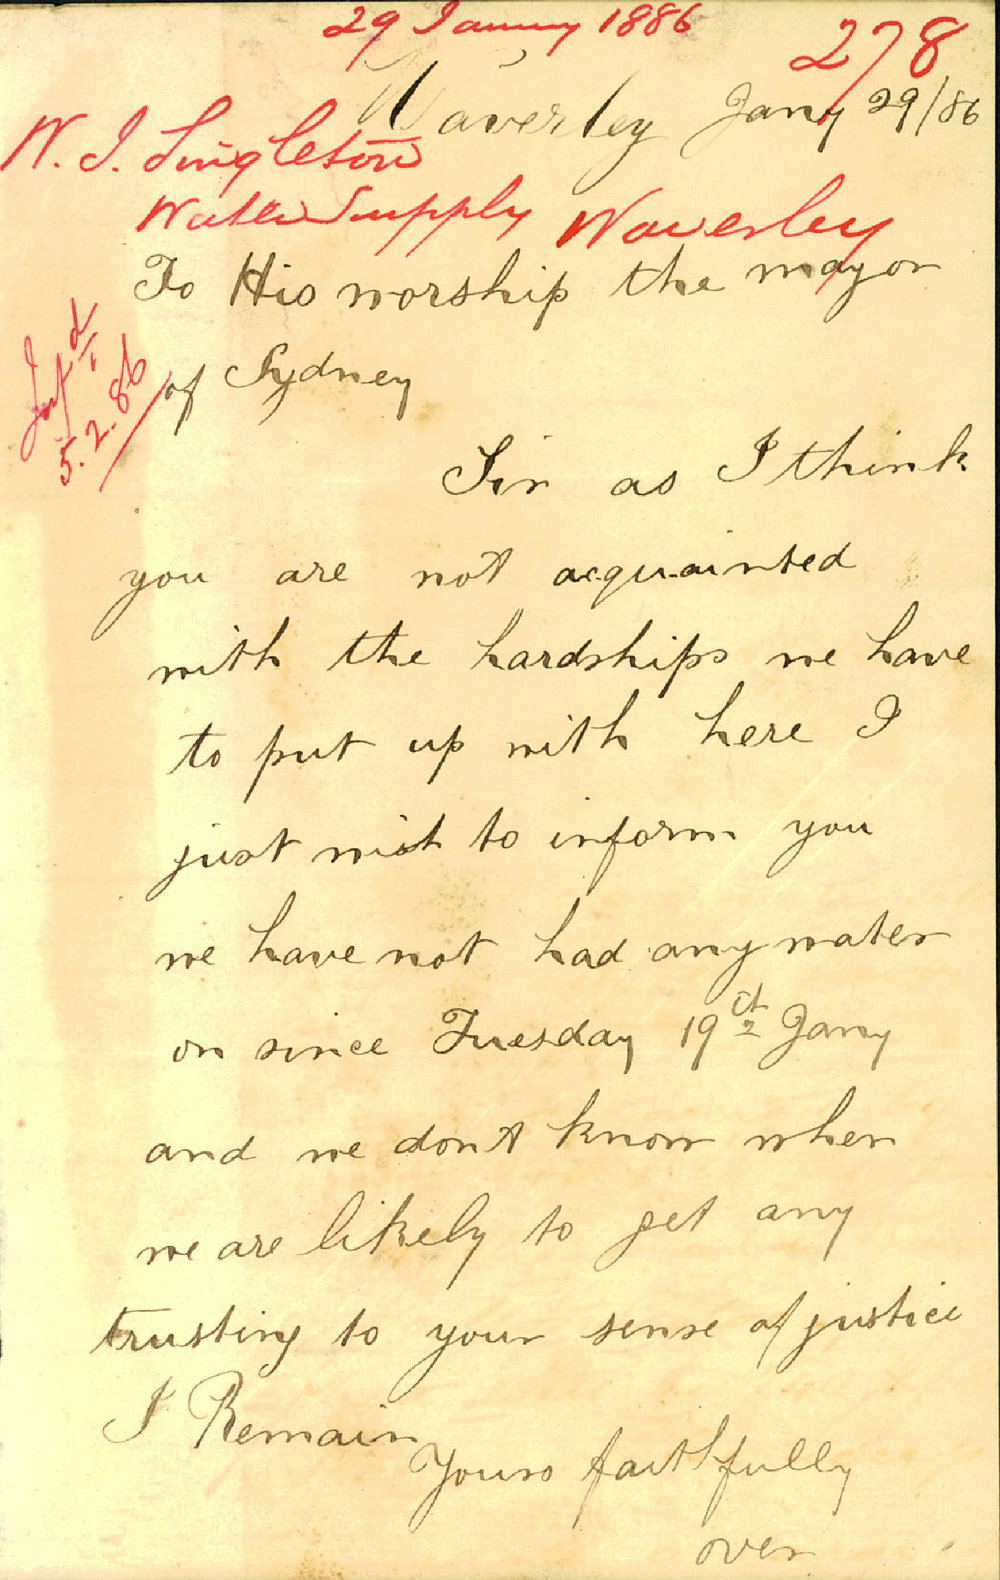 29 January 1886
278
Waverley Jany 29/86
W. J. Singleton
Water Supply Waverley
To His worship the mayor
of Sydney
Inf d
5.2.86
Sir as I think
you are not acquainted
with the hardships we have
to put up with here I
just wish to inform you
we have not had any water
on since Tuesday 19 Jany
and we dont know when
we are likely to get any
trusting to your sense of justice
I Remain
Yours faithfully
over